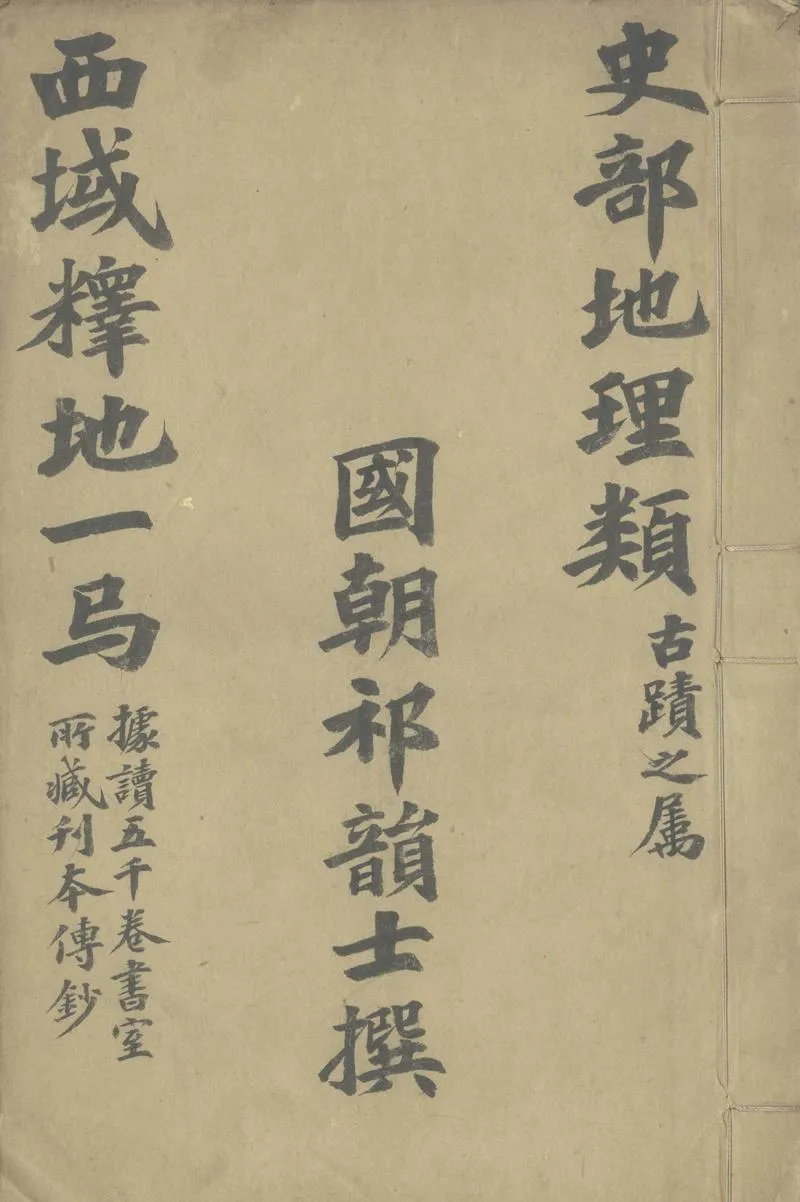 史部地理類 古蹟之属
國朝祁韻士撰
西域釋地一𢎥
據讀五千卷書室
所藏刊本傳鈔